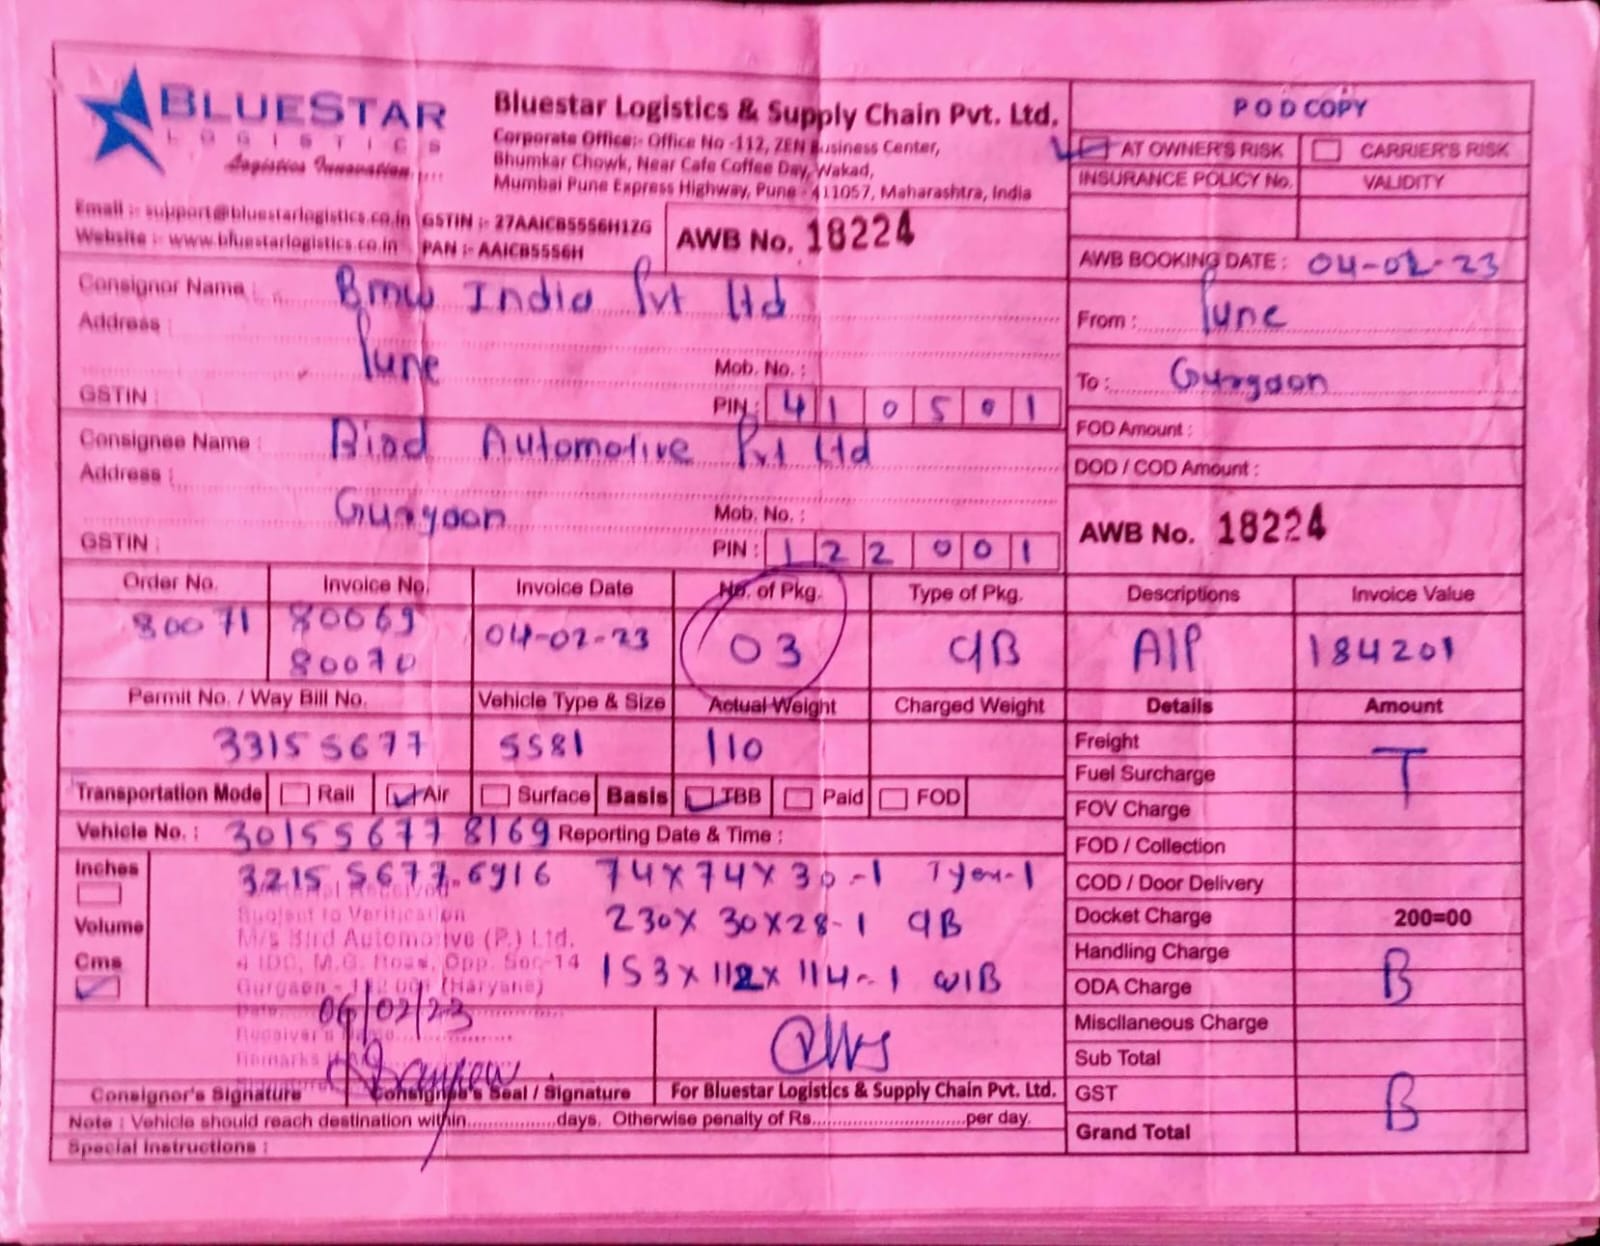 BLUESTAR
LOGISTICS
Logistics Innovation....
Bluestar Logistics & Supply Chain Pvt. Ltd.
Corporate Office:- Office No -112, ZEN Business Center,
Bhumkar Chowk, Near Cafe Coffee Day, Wakad,
Mumbai Pune Express Highway, Pune - 411057, Maharashtra, India
Email :- support@bluestarlogistics.co.in GSTIN :- 27AAICB5556H1ZG
Website :- www.bluestarlogistics.co.in PAN :- AAICB5556H
AWB No. 18224
POD COPY
AT OWNER'S RISK CARRIER'S RISK
INSURANCE POLICY No. VALIDITY
AWB BOOKING DATE : 04-02-23
From : Pune
To : Gurgaon
FOD Amount :
DOD / COD Amount :
AWB No. 18224
Consignor Name : Bmw India Pvt Ltd
Address :
Pune Mob. No. :
GSTIN : PIN : 410501
Consignee Name : Bird Automotive Pvt Ltd
Address :
Gurgaon Mob. No. :
GSTIN : PIN : 122001
Order No. Invoice No. Invoice Date No. of Pkg. Type of Pkg. Descriptions Invoice Value
80071 80069 04-02-23 03 CIB AIP 184201
80070
Permit No. / Way Bill No. Vehicle Type & Size Actual Weight Charged Weight Details Amount
33155677 5581 110
Transportation Mode Rail Air Surface Basis TBB Paid FOD
Vehicle No. : 30155677 8169 Reporting Date & Time :
Inches 3215 5677 6916 74x74x30-1 Tyer-1
Volume 230x30x28-1 CIB
Cms 153x112x114-1 WIB
Subject to Verification
M/s Bird Automotive (P.) Ltd.
Gurgaon - 122 001 (Haryana)
Date 06/02/23
Receiver's Name
Remarks
Consignor's Signature Consignee's Seal / Signature For Bluestar Logistics & Supply Chain Pvt. Ltd.
Note : Vehicle should reach destination within................days. Otherwise penalty of Rs............................per day.
Special Instructions :
Freight T
Fuel Surcharge
FOV Charge
FOD / Collection
COD / Door Delivery
Docket Charge 200=00
Handling Charge B
ODA Charge
Miscllaneous Charge
Sub Total
GST B
Grand Total